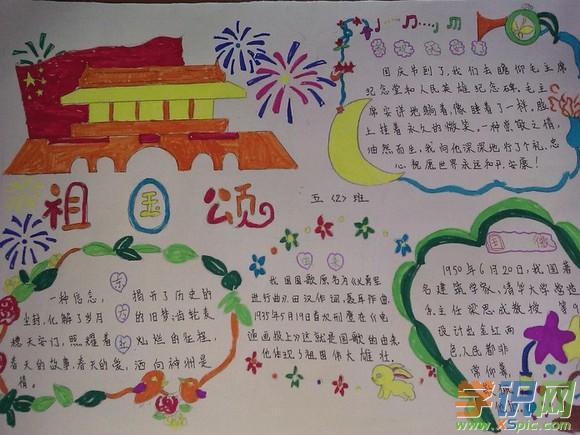 祖国颂
五〈2〉班
国庆节到了,我们去瞻仰毛主席
纪念堂和人民英雄纪念碑,毛主
席安详地躺着,像睡着了一样,脸
上挂着永久的微笑,一种崇敬之情,
油然而生,我向他深深地行了个礼,忠
心祝愿世界永远和平,安康!
东方红
一种信念, 揭开了历史的
尘封,化解了岁月 的旧梦;齿轮表
穗天安门,照耀着 灿烂的征程,
春天的故事,春天的爱,洒向神洲是
情。
国歌
我国国歌原名为《义勇军
进行曲》,田汉作词,聂耳作曲,
1935年5月19日首次刑
画投上
这就是国歌的由来
他体现了祖国伟大 雄壮.
国徽
1950年6月20日,我国著
名建筑学家,清华大学营造
系主任梁思成教授 等
设计出金红两
色,人民都非
常仰慕,
学识网
www.XSpic.com